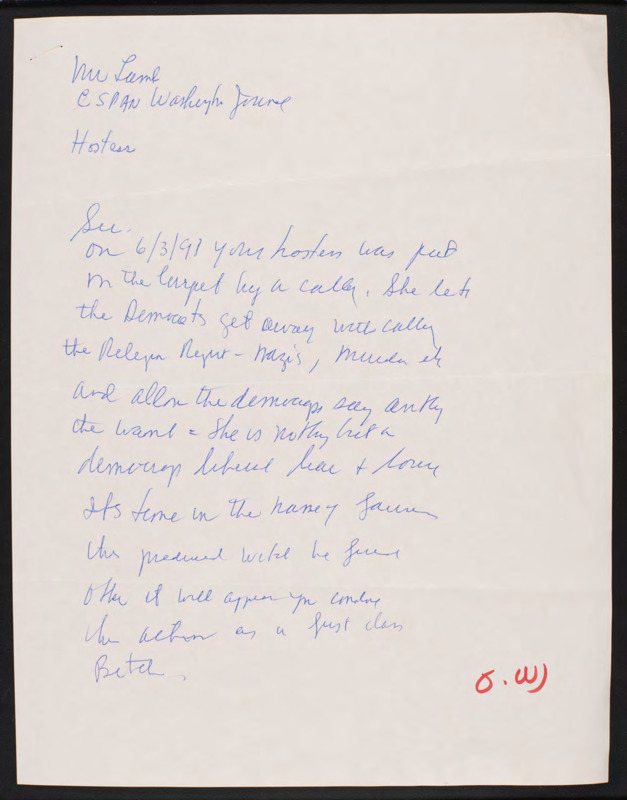 Mr Lamb
CSPAN Washington Journal
Hostess
Sir.
on 6/3/98 your hostess was put
on the Carpet by a caller. She lets
the Democrats get away with calling
the Religion Right - Nazis, Murder etc
and allow the democraps say anthg
the want = She is nothing but a
democrap liberal liar &
Its time in the name of
this be fired
Other it will appear you condone
the action as a first class
Bitch.
O.W)